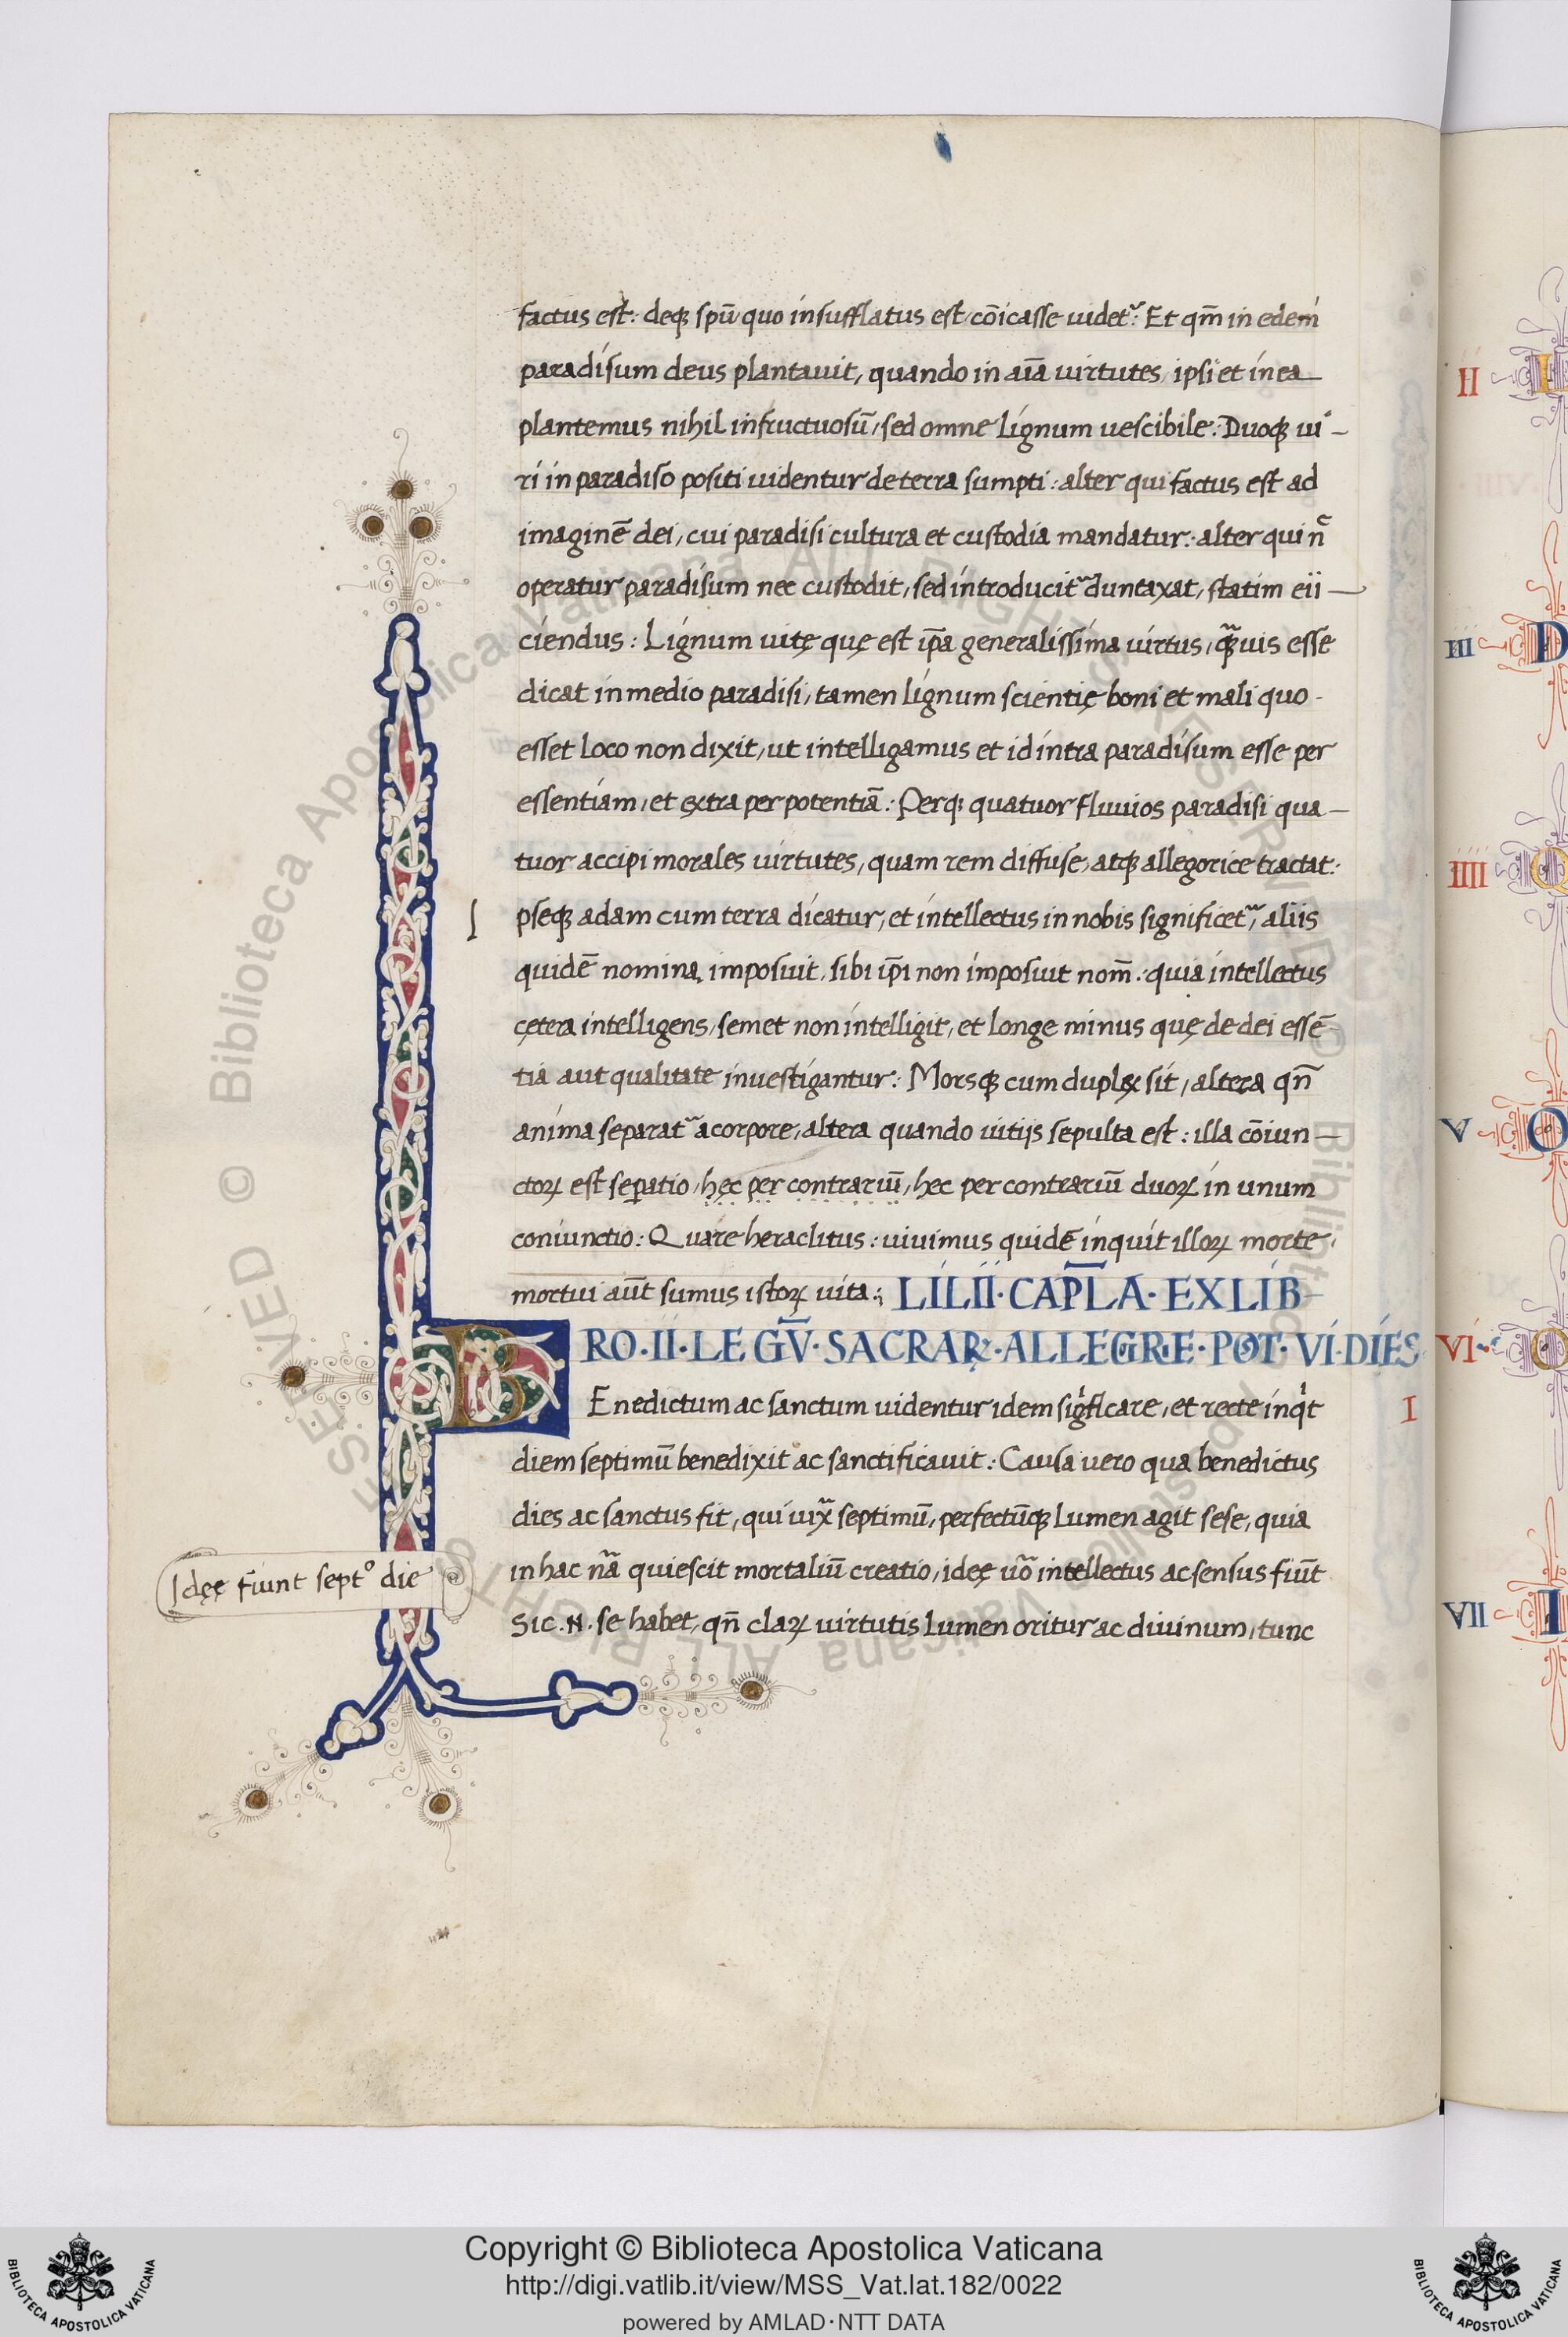 factus est: deq; spū quo insufflatus est cōicasse uidet᷑: Et qm̄ in edem
paradisum deus plantauit, quando in aīa uirtutes, ipsi et in ea
plantemus nihil infructuosū, sed omne lignum uescibile: Duoq; ui-
ri in paradiso positi uidentur de terra sumpti: alter qui factus est ad
imaginē dei, cui paradisi cultura et custodia mandatur: alter qui n̄
operatur paradisum nec custodit, sed introducit᷑ duntaxat, statim eii-
ciendus: Lignum uitę quę est ip̄a generalissima uirtus, q̄uis esse
dicat in medio paradisi, tamen lignum scientię boni et mali quo
esset loco non dixit, ut intelligamus et id intra paradisum esse per
essentiam, et extra per potentiā: Perq; quatuor fluuios paradisi qua-
tuor accipi morales uirtutes, quam rem diffuse, atq; allegorice tractat:
I pseq; adam cum terra dicatur, et intellectus in nobis significet᷑, aliis
quidē nomina imposuit, sibi ip̄i non imposuit nom̄: quia intellectus
cętera intelligens, semet non intelligit, et longe minus quę de dei essē-
tia aut qualitate inuestigantur: Morsq; cum duplex sit, altera qn̄
anima separat᷑ a corpore, altera quando uitijs sepulta est: illa cōiun-
ctoꝝ est sepatio, hęc per contrariū, hec per contrariū duoꝝ in unum
coniunctio: Quare heraclitus: uiuimus quidē inquit illoꝝ morte,
mortui aūt sumus istoꝝ uita:; LILII·CAPL̄A·EX LIB-
RO·II·LEGV̄·SACRAꝜ·ALLEGRE·POT·VI·DIES
BEnedictum ac sanctum uidentur idem sigficare, et recte inqt
I
diem septimū benedixit ac sanctificauit: Causa uero qua benedictus
dies ac sanctus fit, qui iuxͣ septimū, perfectūq; lumen agit sese, quia
in hac nr̄a quiescit mortaliū creatio, ideę uō intellectus ac sensus fiūt
Idęę fiunt septº die
Sic .N. se habet, qn̄ claꝝ uirtutis lumen oritur ac diuinum, tunc
II
III
IIII
V
VI
VII
L
D
O
I
Copyright © Biblioteca Apostolica Vaticana
http://digi.vatlib.it/view/MSS_Vat.lat.182/0022
powered by AMLAD·NTT DATA
BIBLIOTECA APOSTOLICA VATICANA
BIBLIOTECA APOSTOLICA VATICANA